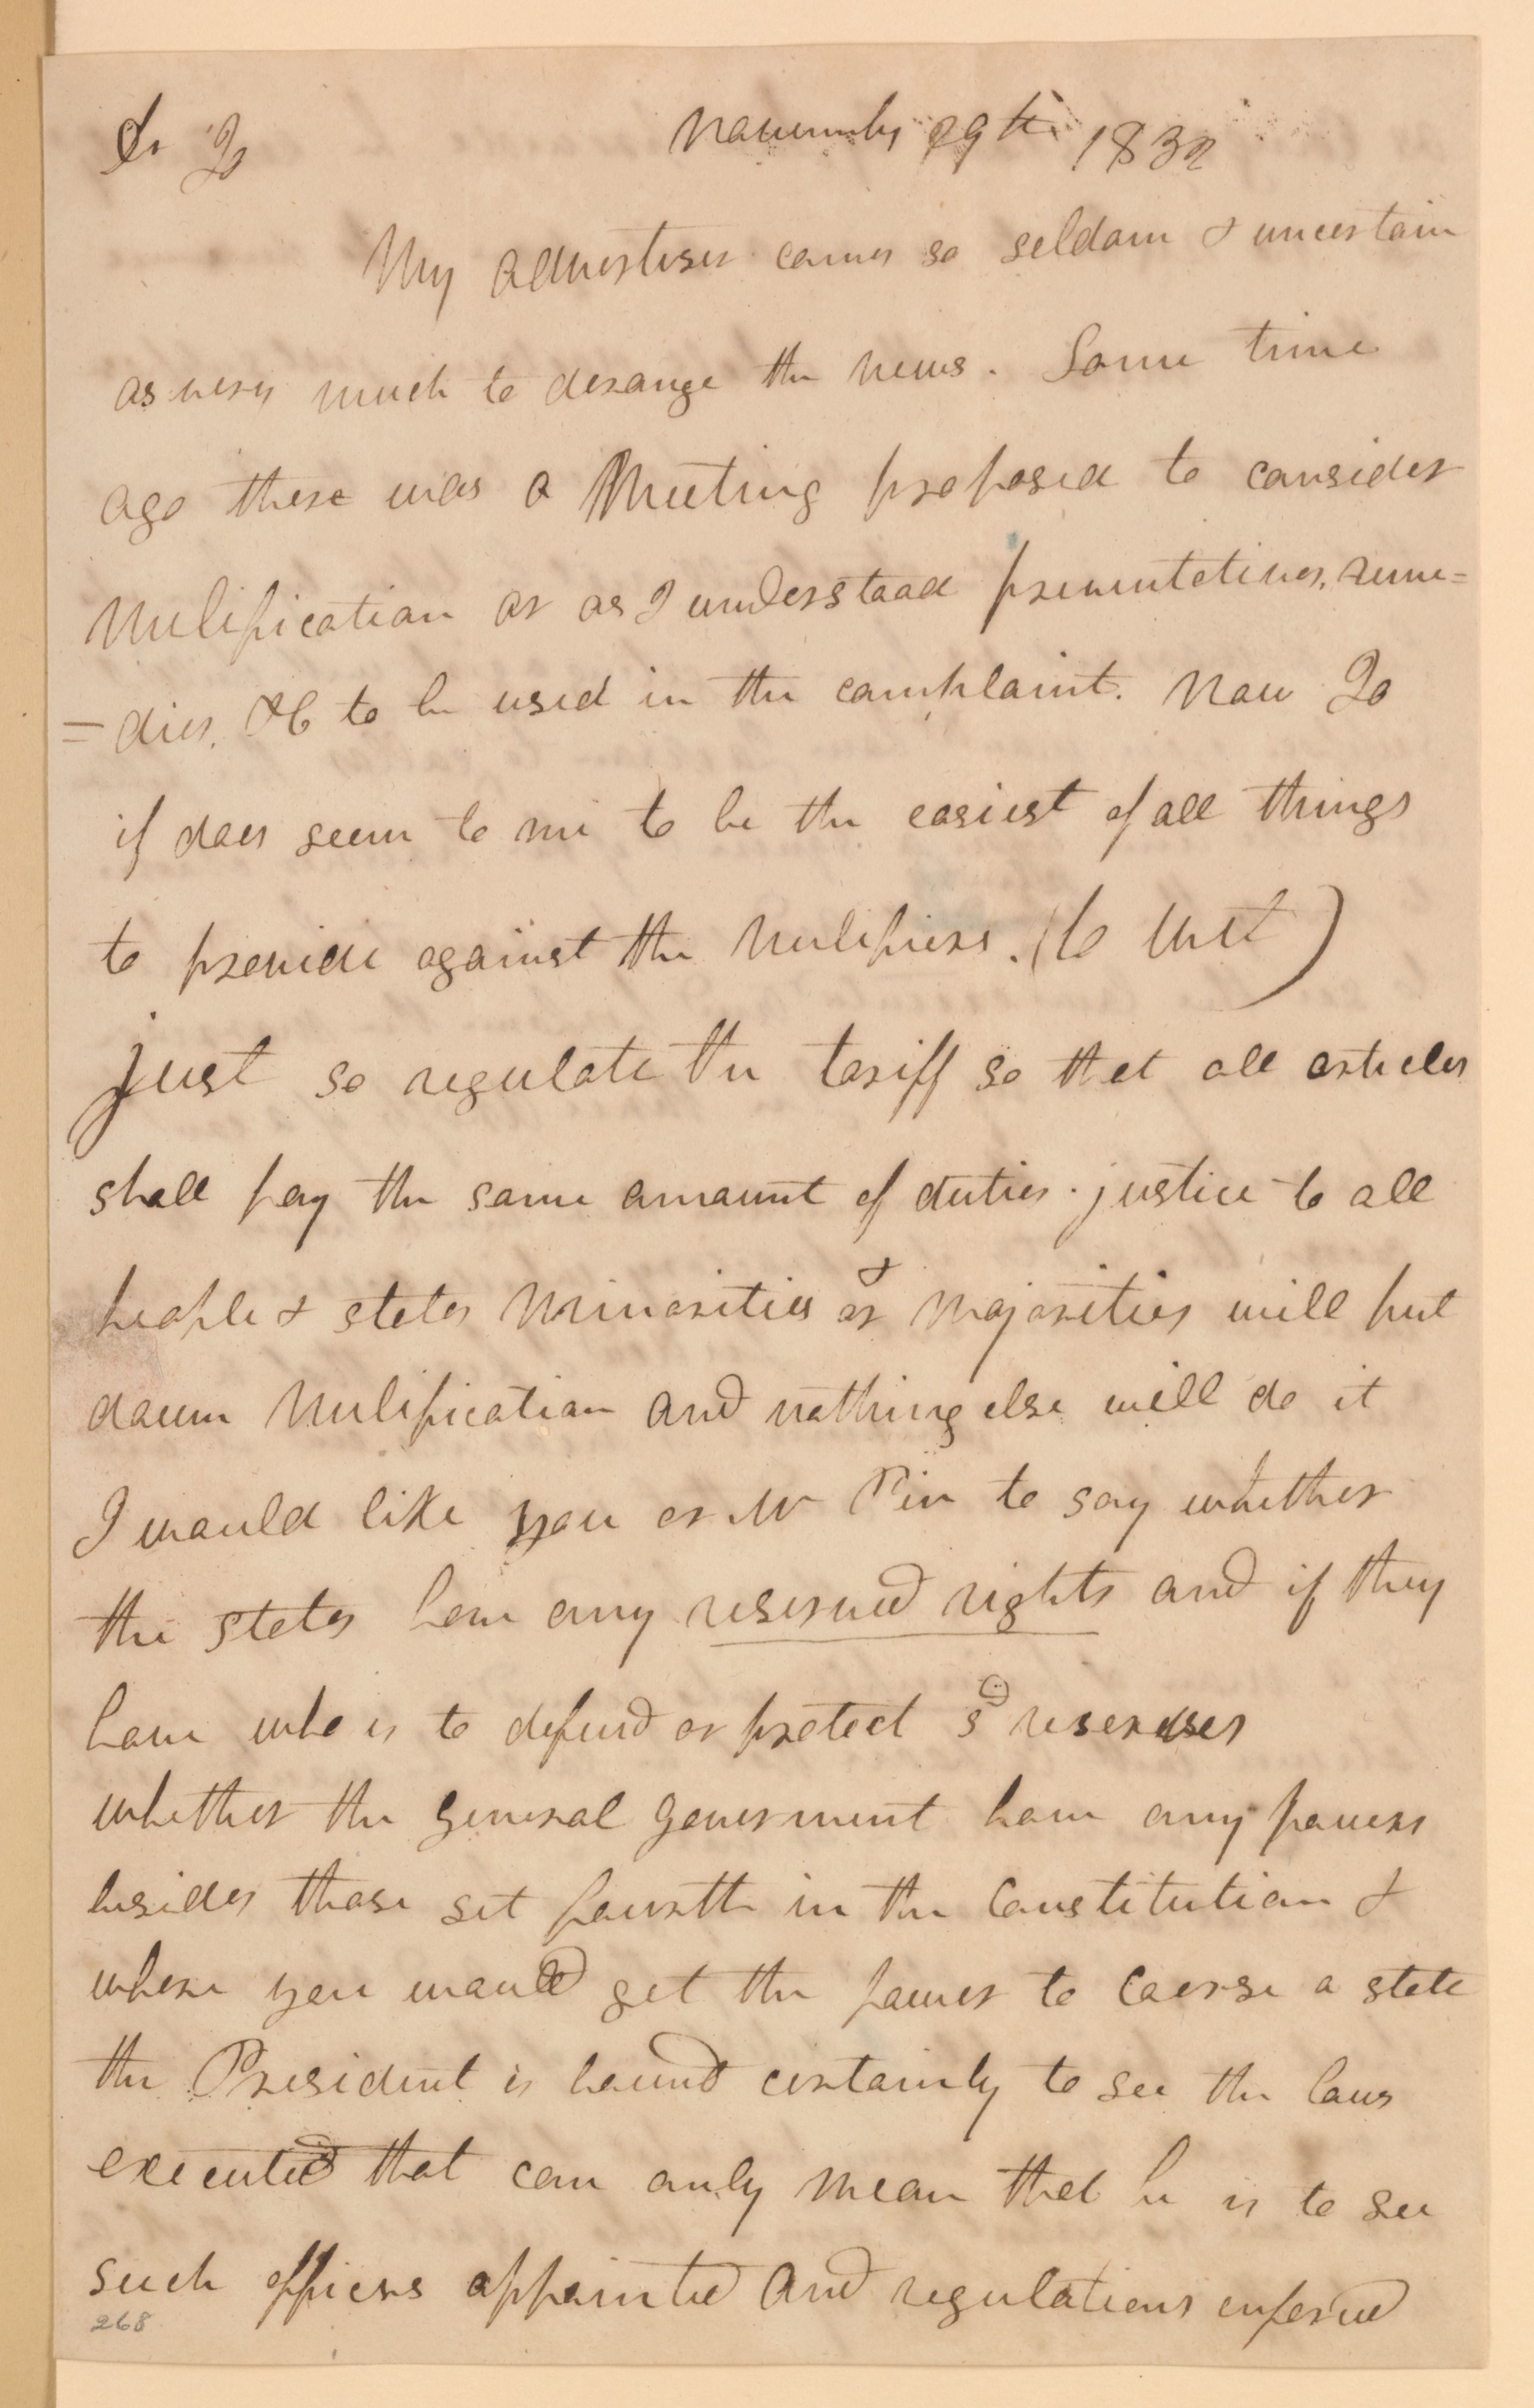 Dr Jo November 29th 1832
My Advertiser comes so seldom & uncertain
as very much to derange the news. Some time
ago there was a Meeting proposed to consider
Nulification or as I understood preventatives, reme=
=dies, &c to be used in the complaint. Now Jo
if does seem to me to be the easiest of all things
to provide against the Nulifiers. (to wit)
just so regulate the tariff so that all articles
shall pay the same amount of duties. justice to all
people & states Minorities & or Majorities will put
down Nulification and nothing else will do it
I would like you or Mr Pin to say whether
the states have any reserved rights and if they
have who is to defend or protect sd reserves
whether the General Goverment have any powers
besides those set fourth in the Constitution &
where you would get the power to coerse a state
the President is bound certainly to see the laws
executed that can only mean that he is to see
such officers appointed and regulations enforced
268